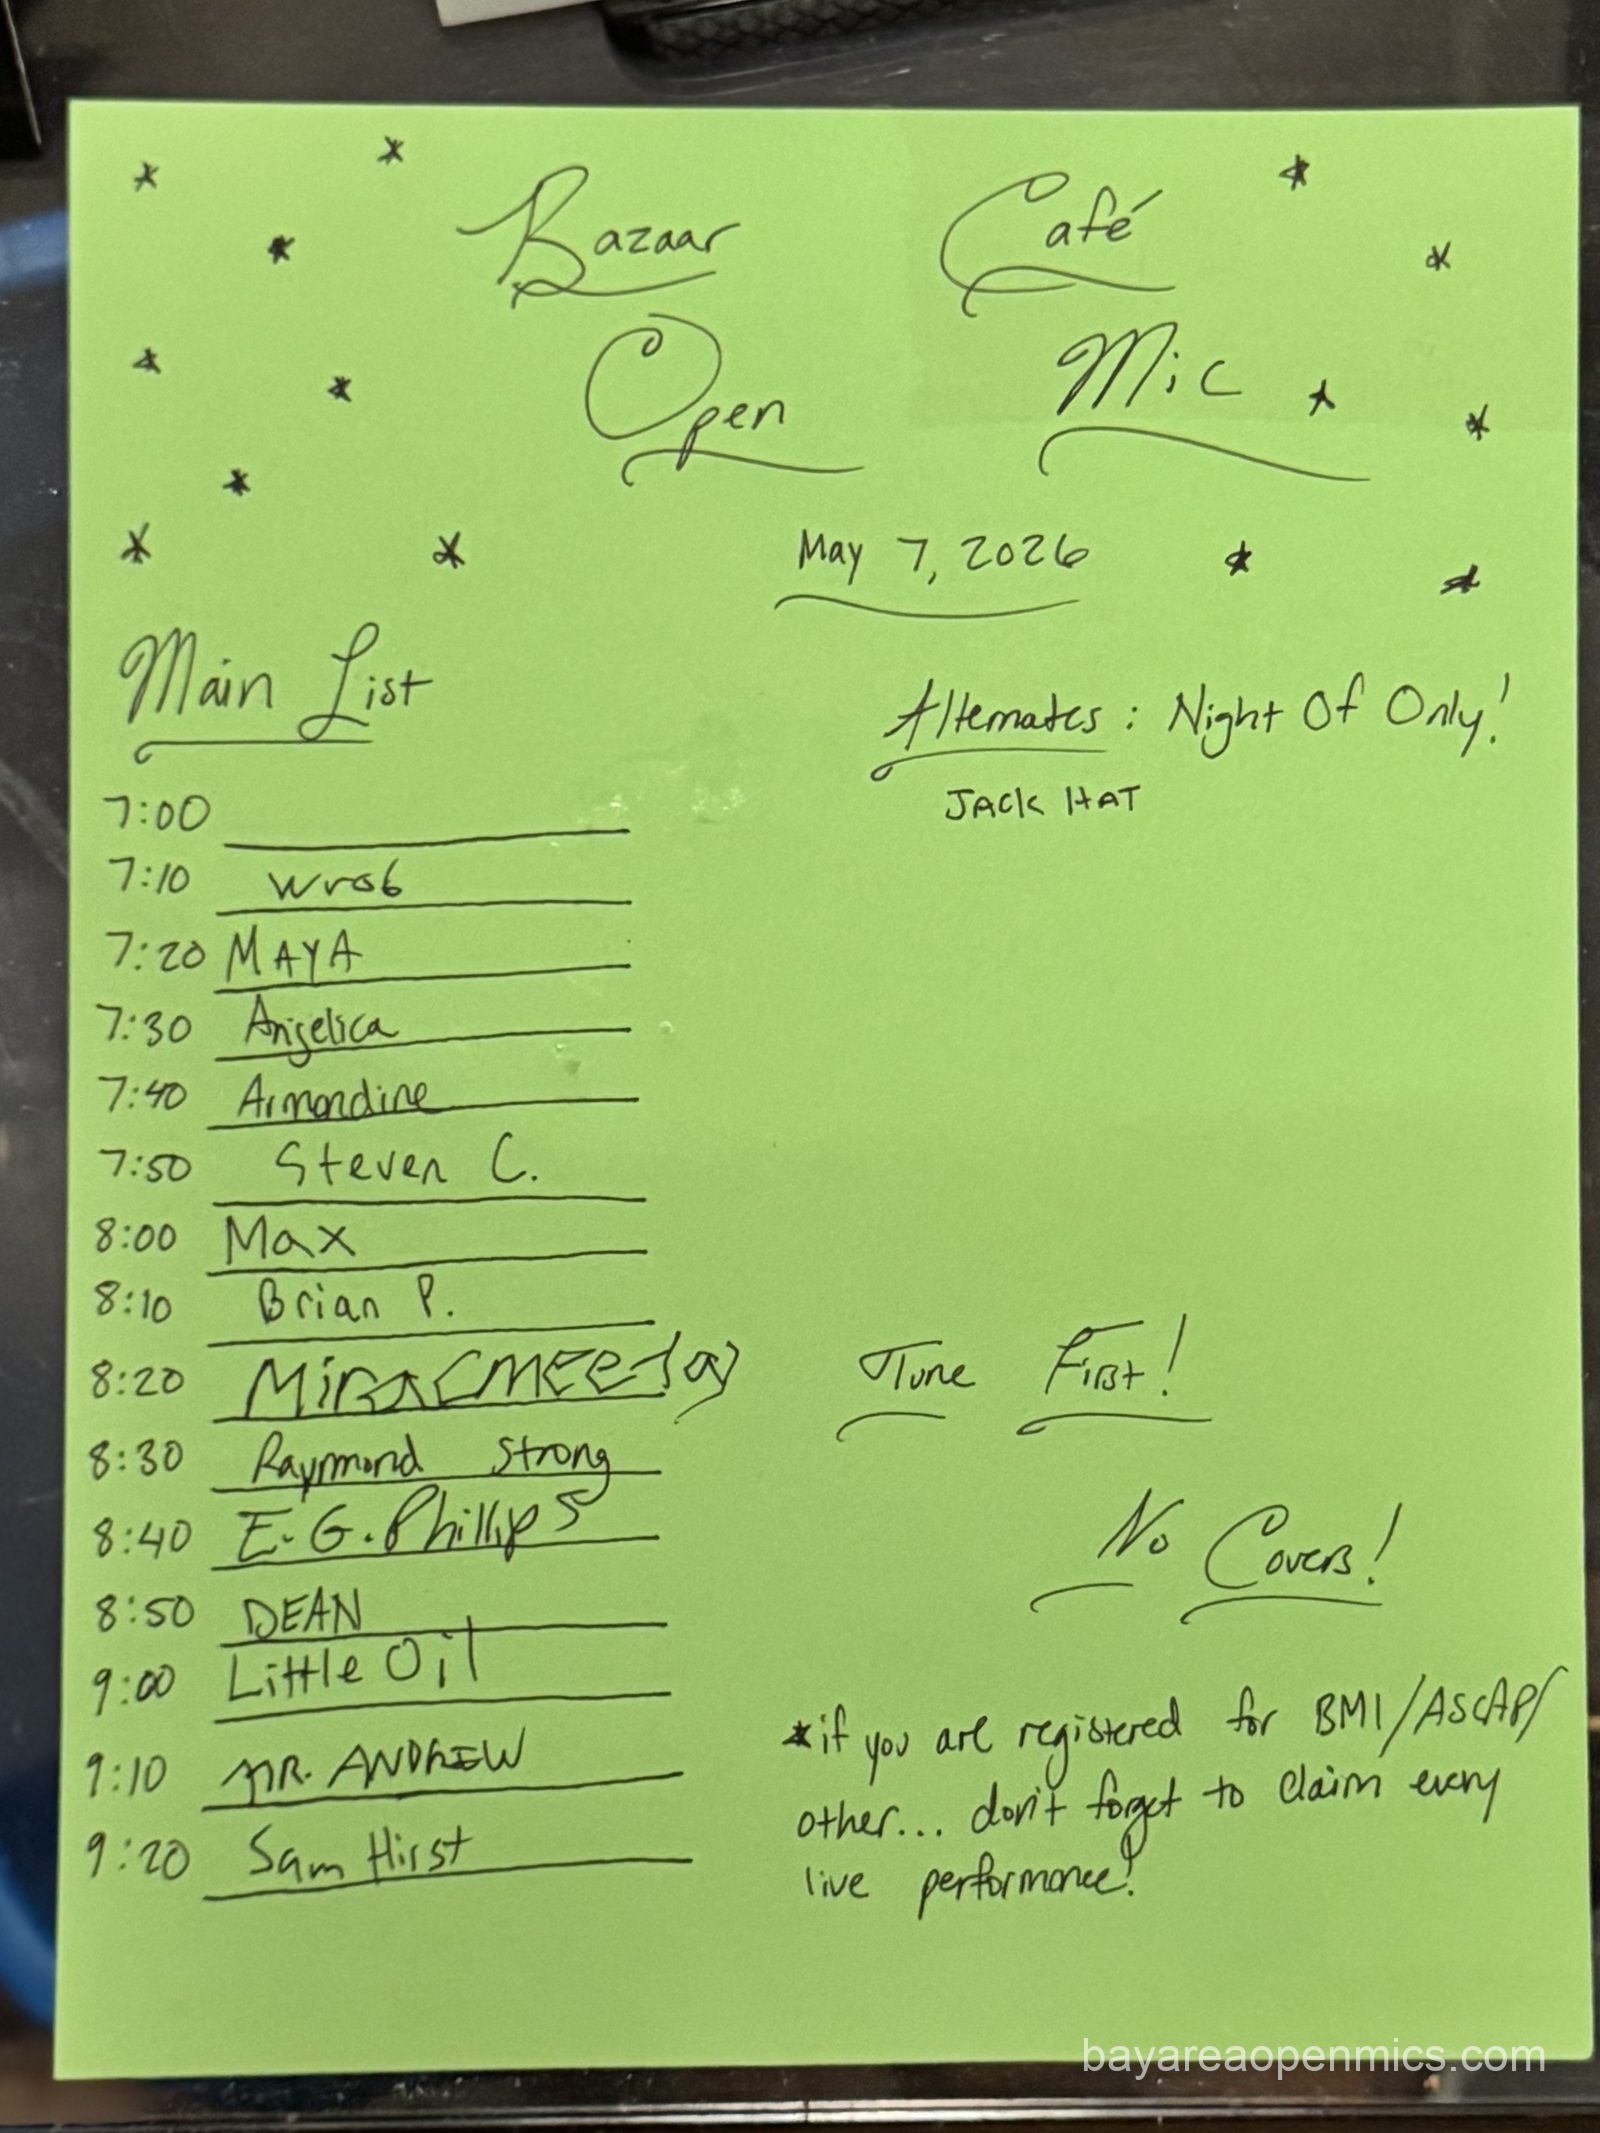 Bazaar Café
Open Mic
May 7, 2026
Main List
Alternates: Night Of Only!
JACK HAT
7:00
7:10 Wrob
7:20 MAYA
7:30 Anjelica
7:40 Armondine
7:50 Steven C.
8:00 Max
8:10 Brian P.
8:20 Mira
8:30 Raymond Strong
8:40 E.G. Phillips
8:50 DEAN
9:00 Little Oil
9:10 MR. ANDREW
9:20 Sam Hirst
Tune First!
No Covers!
*if you are registered for BMI/ASCAP/
other... don't forget to claim every
live performance!
bayareaopenmics.com